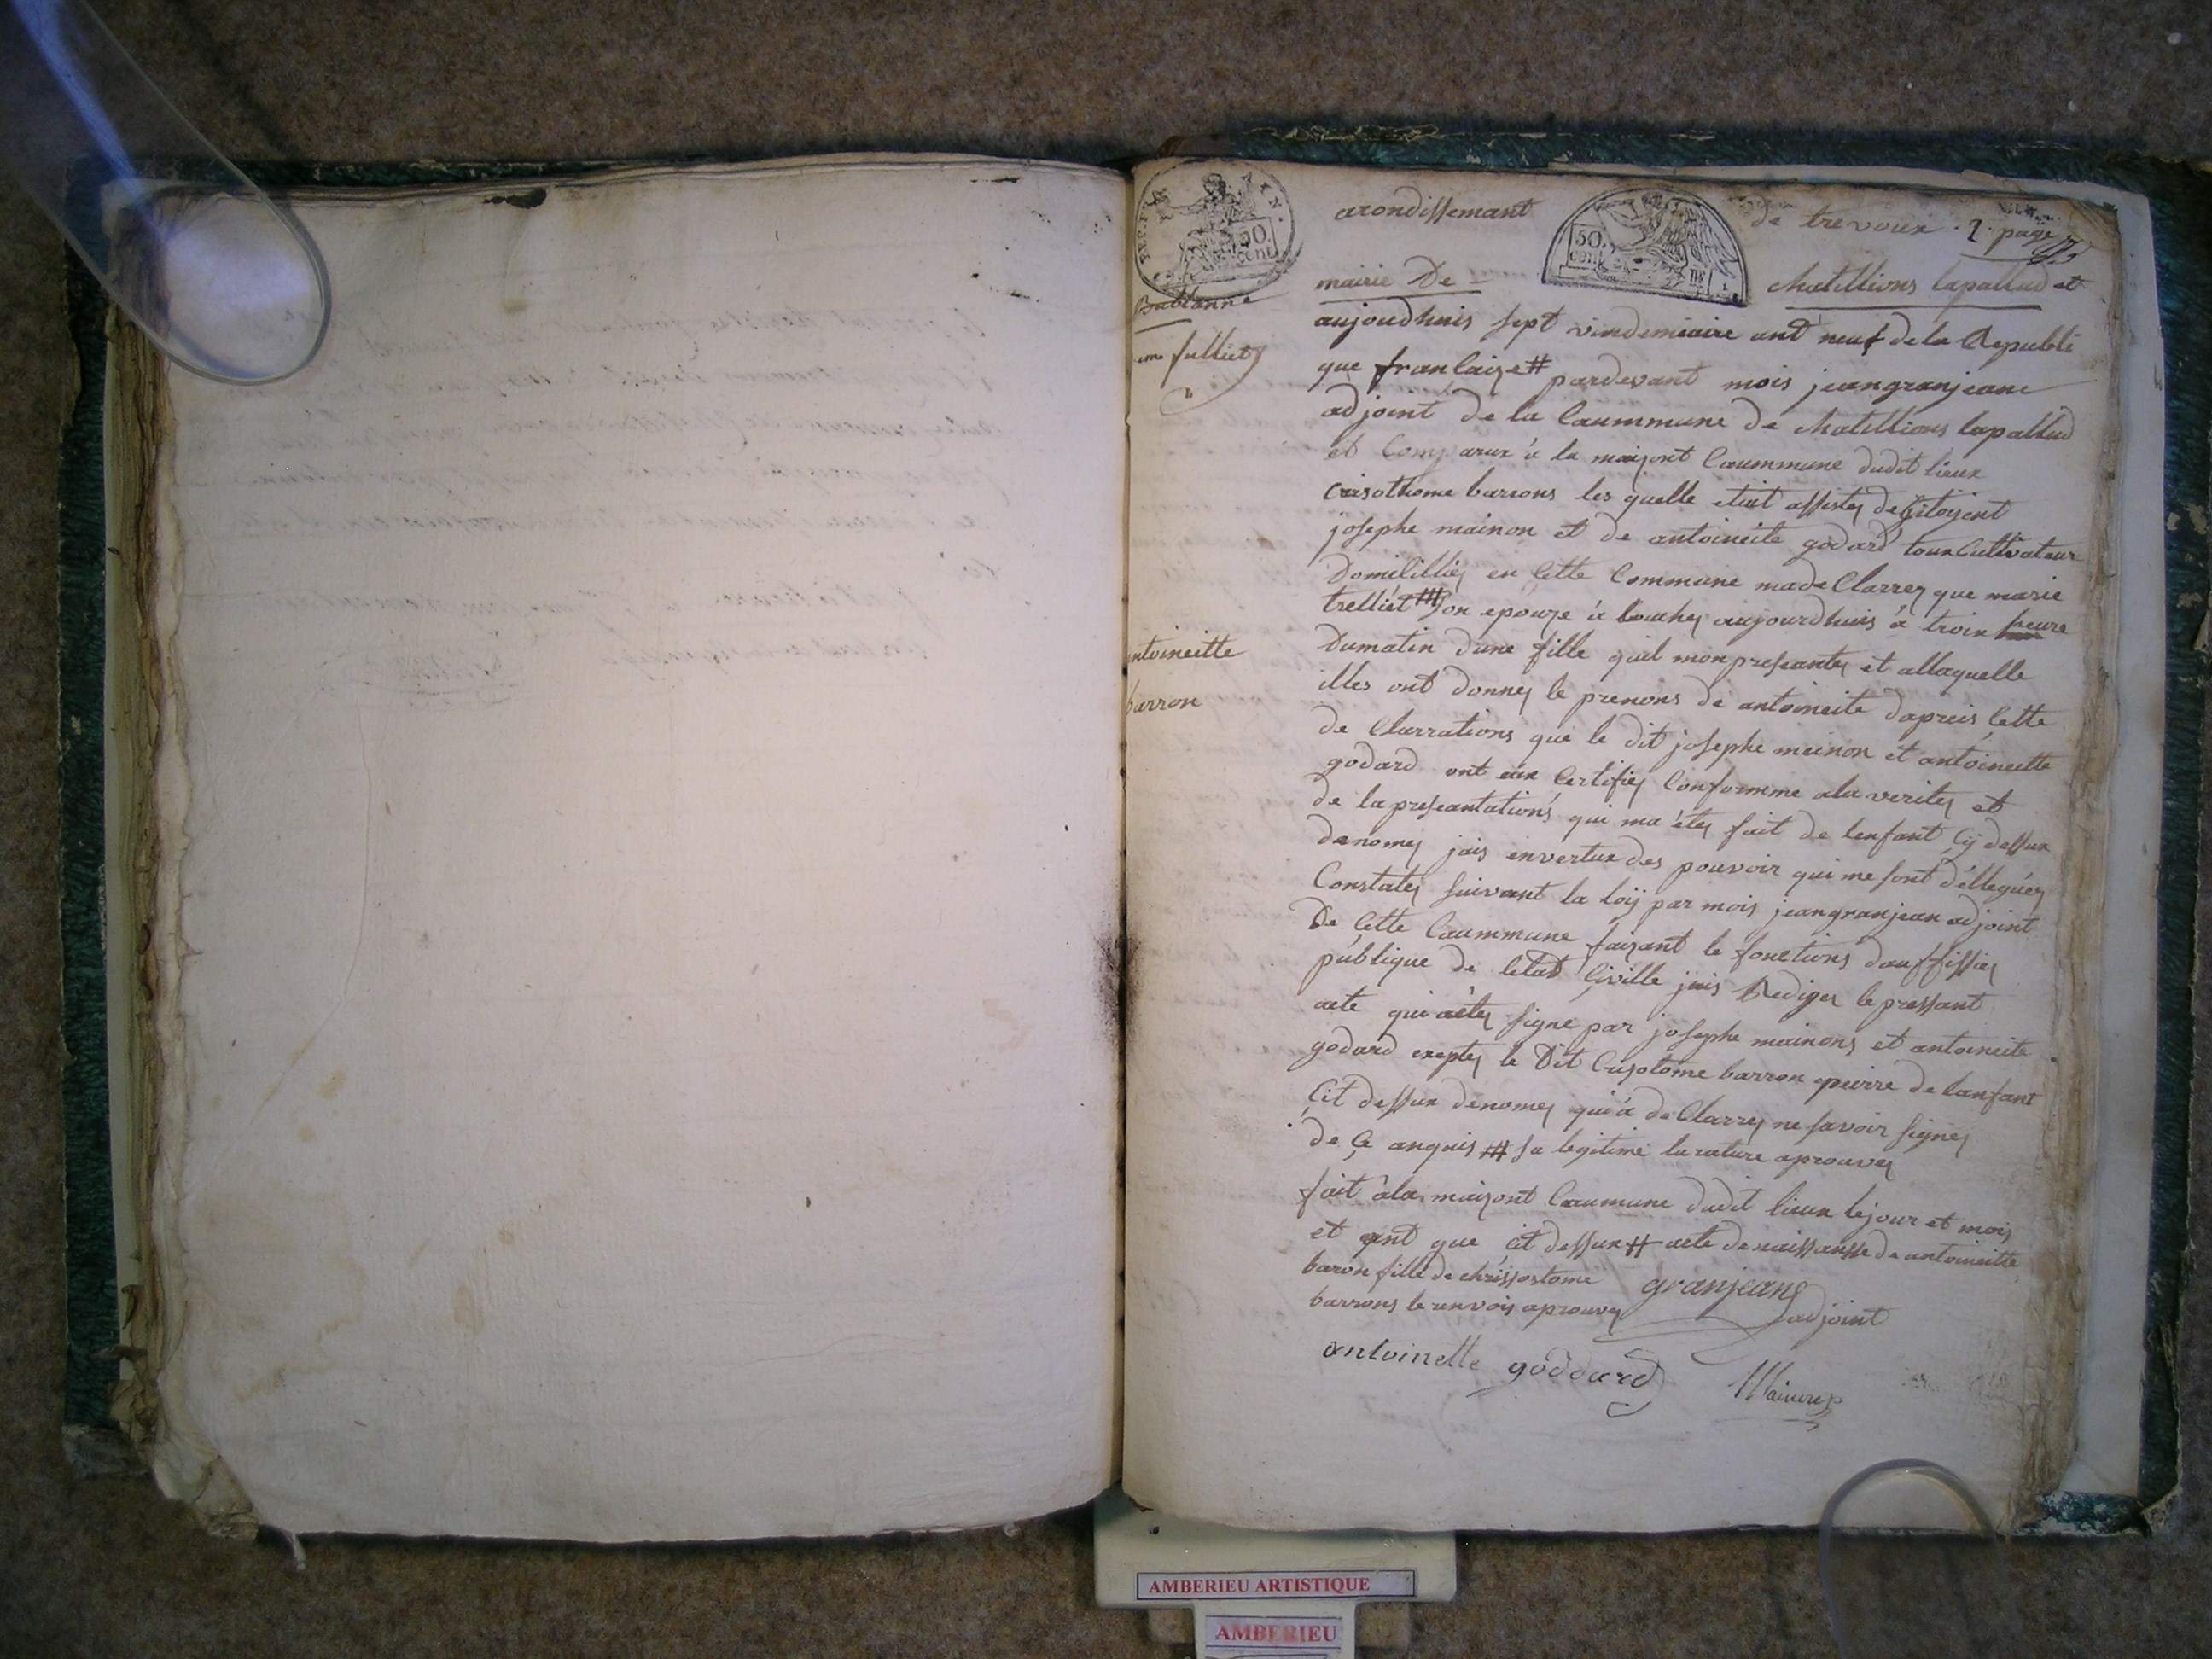 arondissemant de trevoux . 1 . page
50. cent
50. cent
mairie De chatillions lapallud et
Bublanne
aujoudhuis sept vindemiaire ant neuf de la Republi
que franlaize # pardevant mois jeangranjeane
fulliet
adjoint de la Caummune de chatillions lapallud
et Comparux à la maizont Caummune dudit lieux
Crisothome barrons les quelle etait assistez de Citoyent
josephe mainon et de antoineite godard toux Cultivateur
Domicilliéz en Cette Commune madeClarrez que marie
trelliet ## son epouze à Couchez aujourdhuis à troix heure
antoineitte
barron
Dumatin dune fille quil monpresantez et allaquelle
illes ont donnez le prenons de antoineite dapreis Cette
de Clarrations que le dit josephe meinon et antoineitte
godard ont eux Certifiez Conformme ala veritez et
de lapresantations qui ma étez fait de lenfant Cij dessux
denomez jais envertux des pouvoir qui me sont délleguéez
Constatez suivant la loij par mois jeangranjean adjoint
De Cette Caummune faizant le fonctions dauffissiez
publique de letat Civille jais Rediger le pressant
acte qui aétez signe par josephe mainons et antoineite
godard exeptez le Dit Crizotome barron peirre de lanfant
Cit dessux denomez qui à deClarrez ne savoir signez
de Ce anquis ## sa legitime larature aprouvez
fait àla maizont Caumune dudit lieux lejour et mois
et ant que cit dessux # acte denaissansse de antoineitte
baron fille de chrissostome granjeans
barrons le renvois aprouvez adjoint
antoinette goddard Mainon
AMBERIEU ARTISTIQUE
AMBERIEU